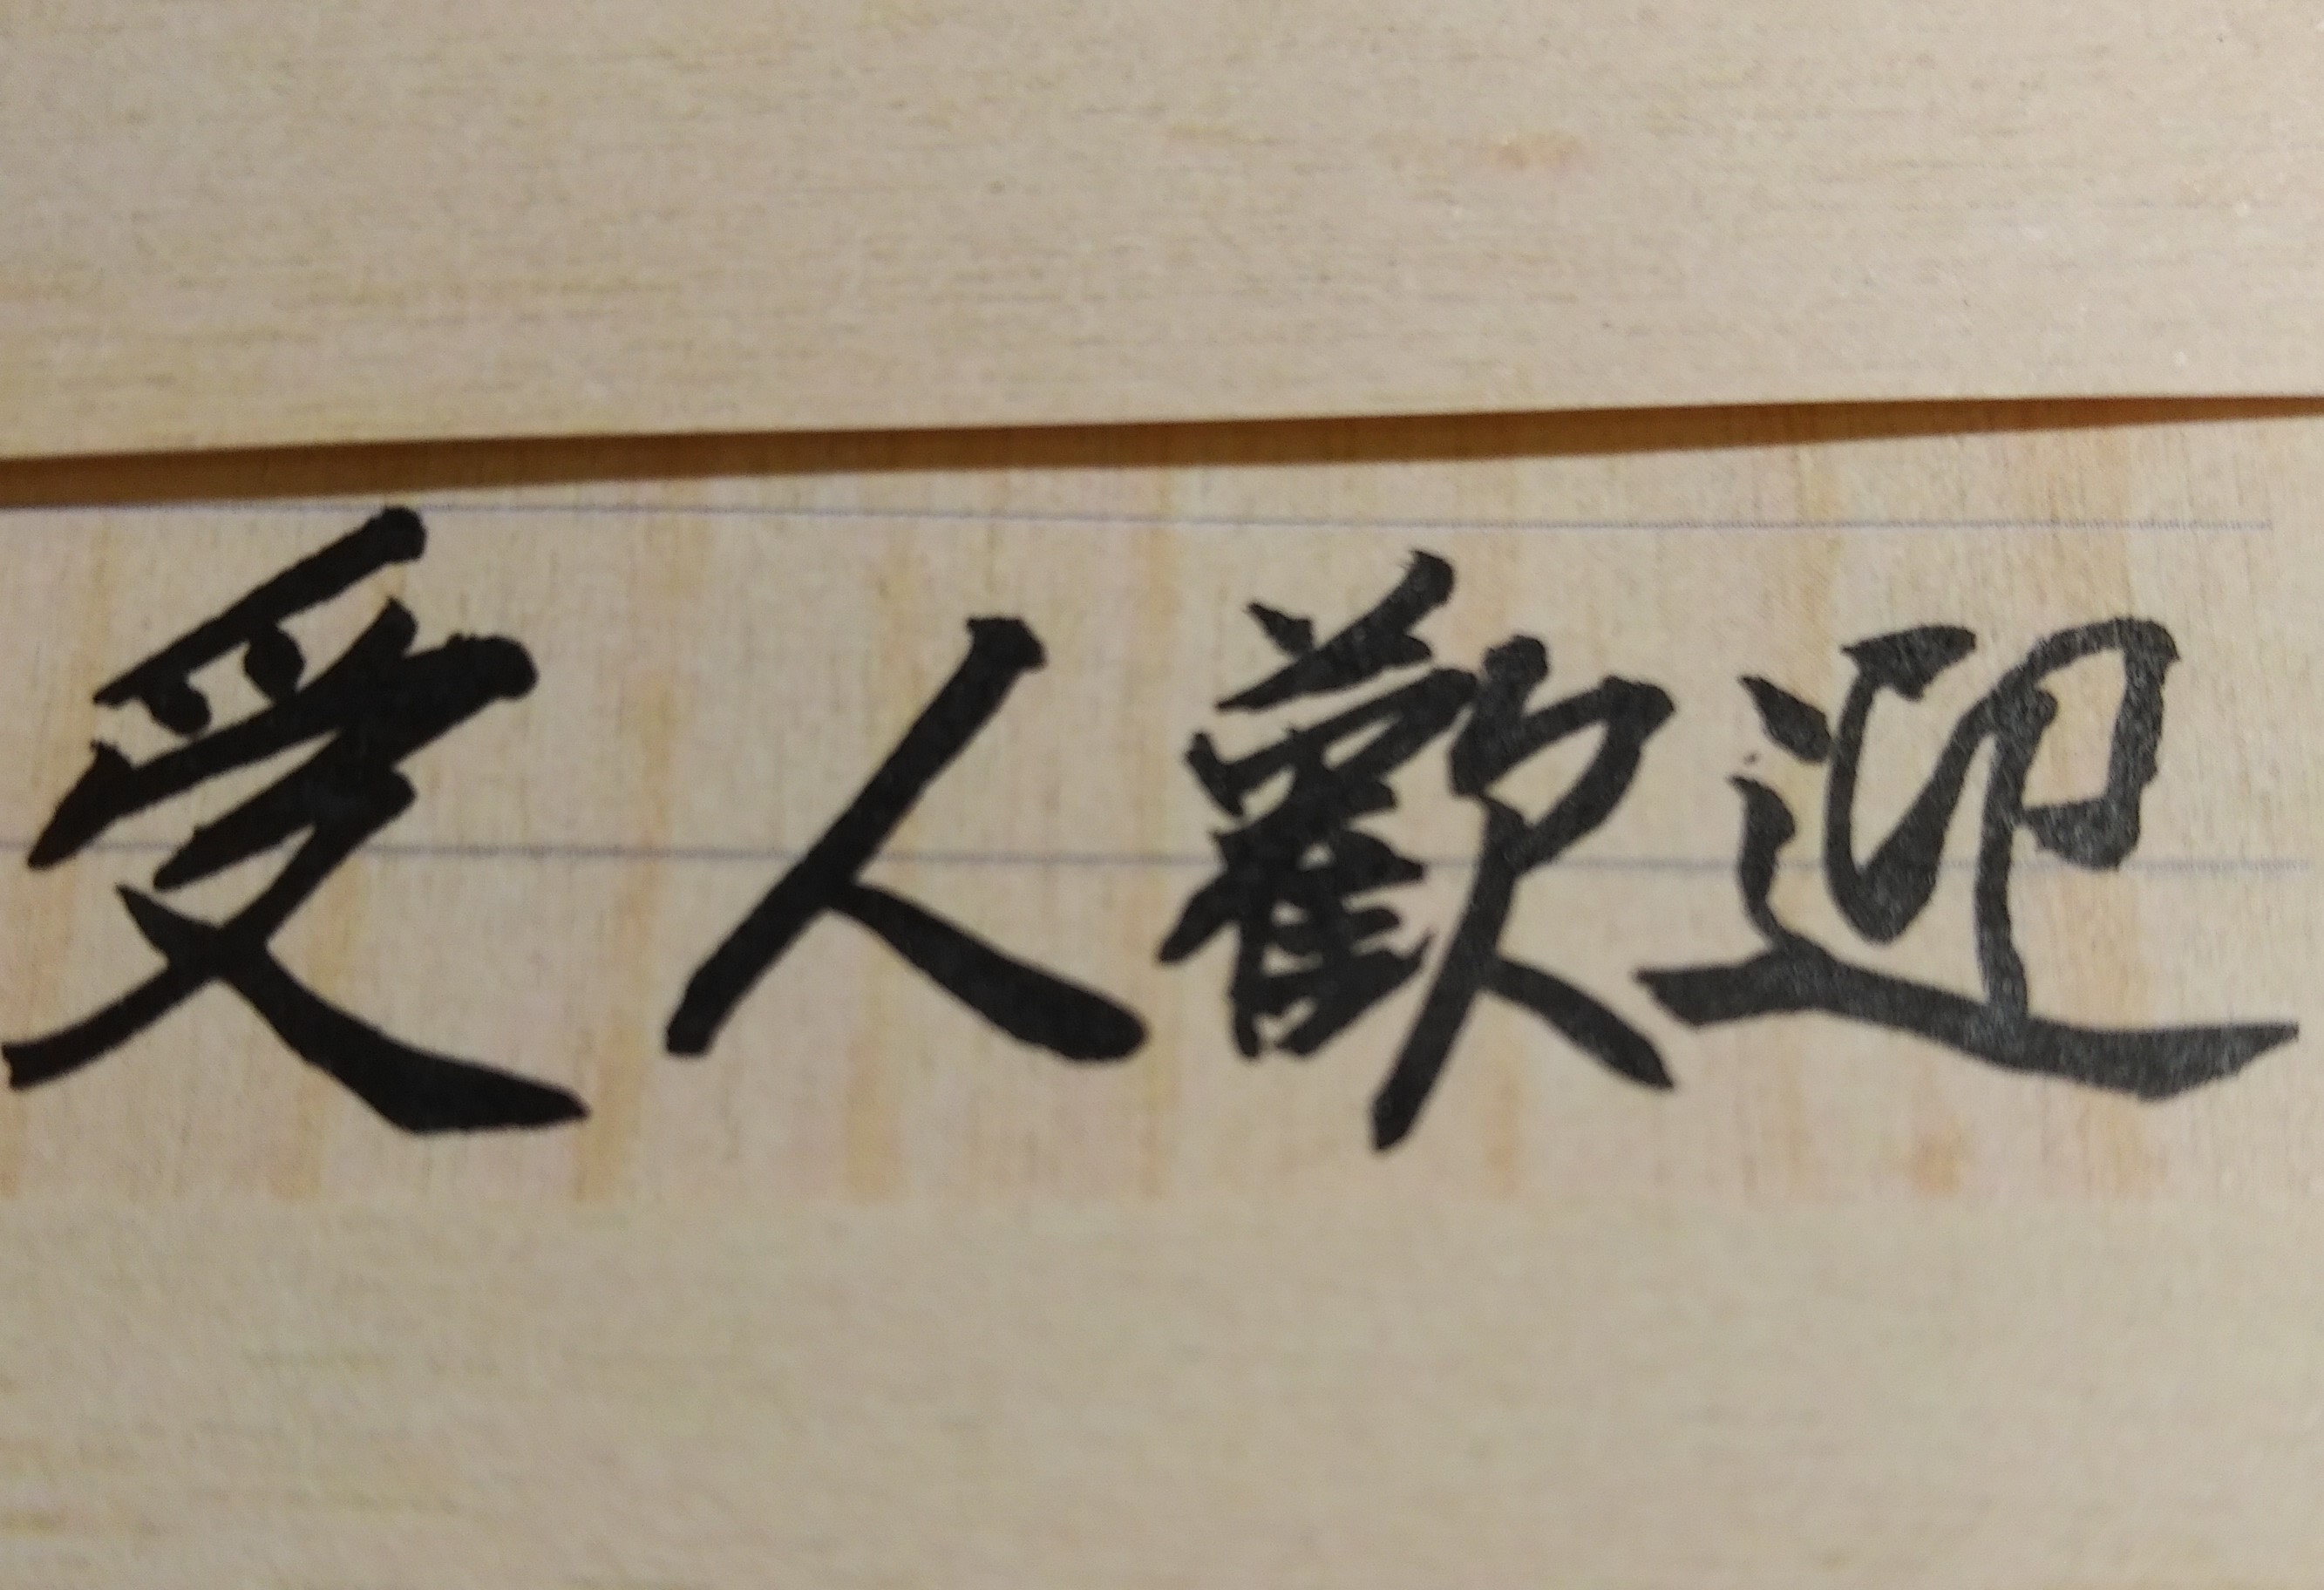 受人歡迎